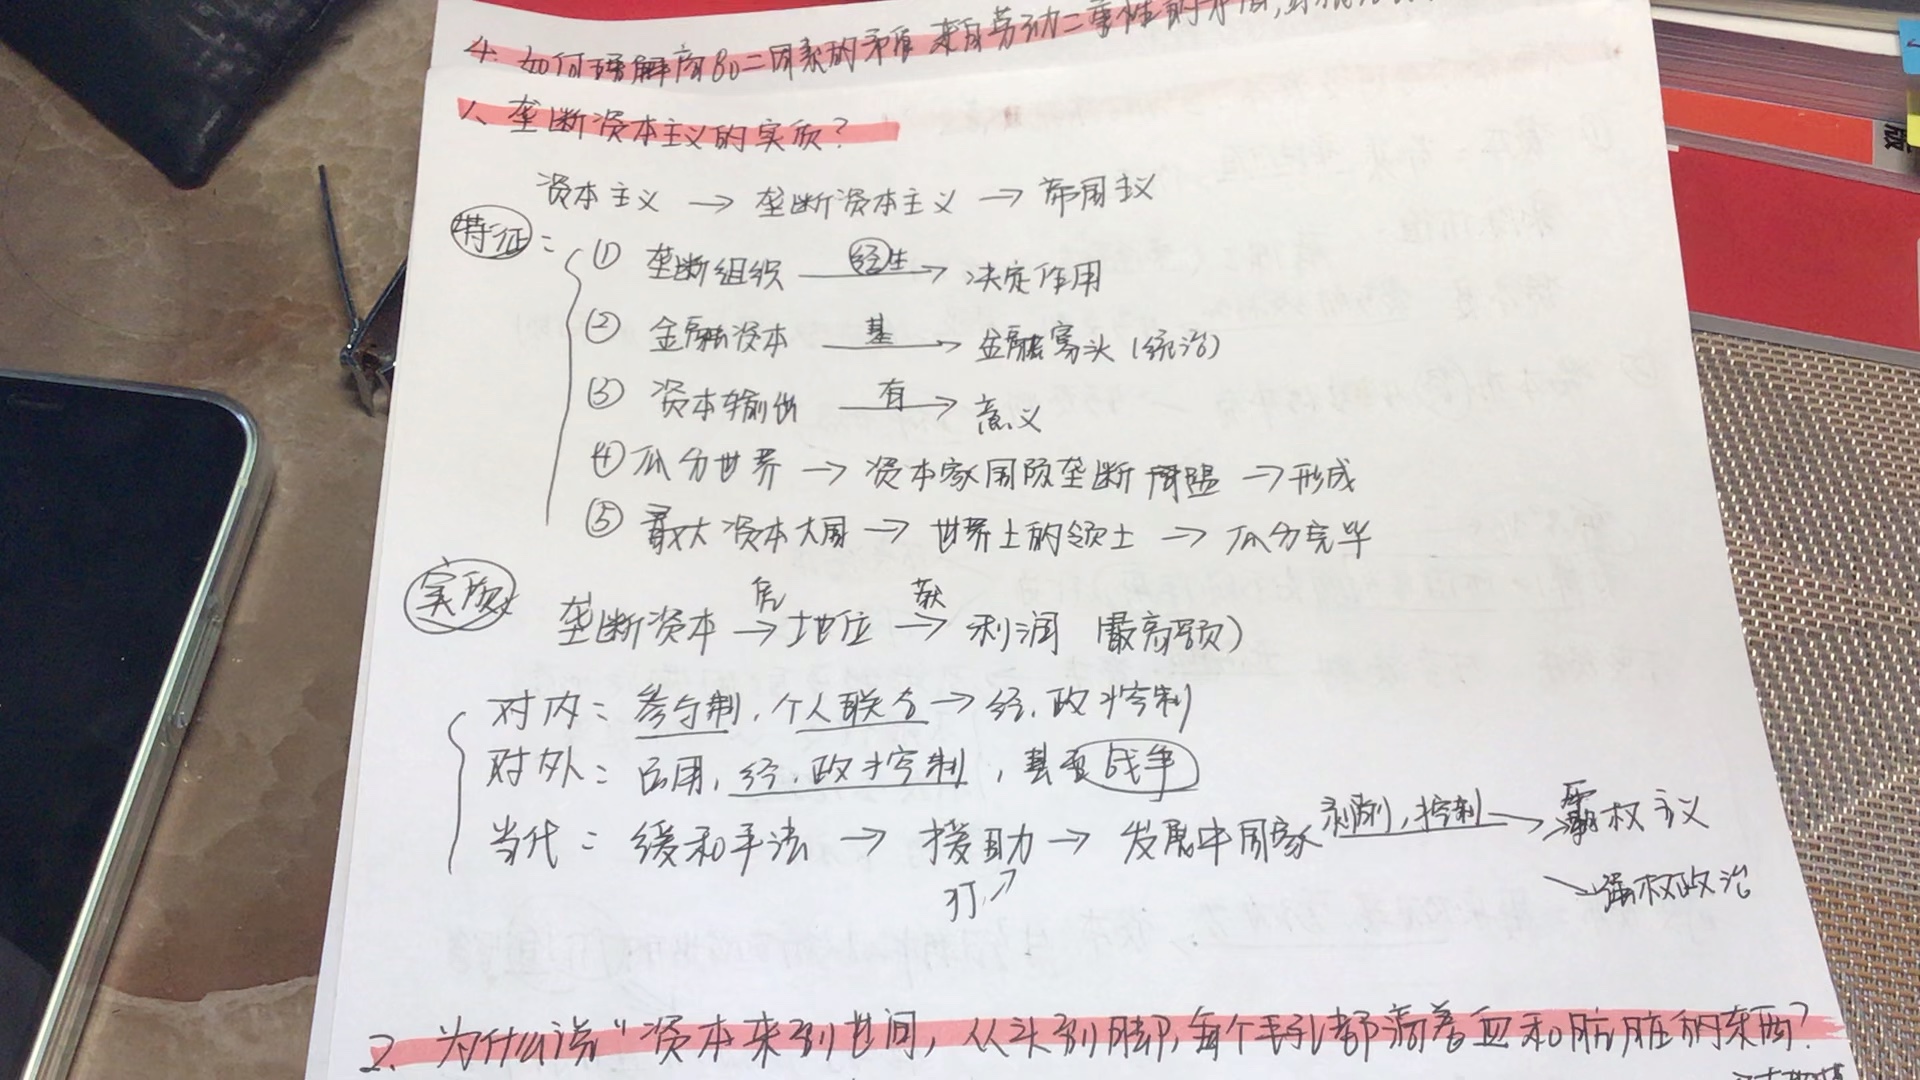 4. 如何理解商品二因素的矛盾来自劳动二重性的矛盾,
1、垄断资本主义的实质?
资本主义 → 垄断资本主义 → 帝国主义
特征:
① 垄断组织 经生→ 决定作用
② 金融资本 基→ 金融寡头(统治)
③ 资本输出 有→ 意义
④ 瓜分世界 → 资本家国际垄断同盟 → 形成
⑤ 最大资本大国 → 世界上的领土 → 瓜分完毕
实质
垄断资本 凭→ 地位 获→ 利润(最高额)
对内: 参与制, 个人联合 → 经, 政控制
对外: 占用, 经, 政控制, 甚至战争
当代: 缓和手法 → 援助 → 发展中国家 剥削, 控制→ 霸权主义
打↗ ↘强权政治
2、为什么说"资本来到世间, 从头到脚, 每个毛孔都滴着血和肮脏的东西?
版